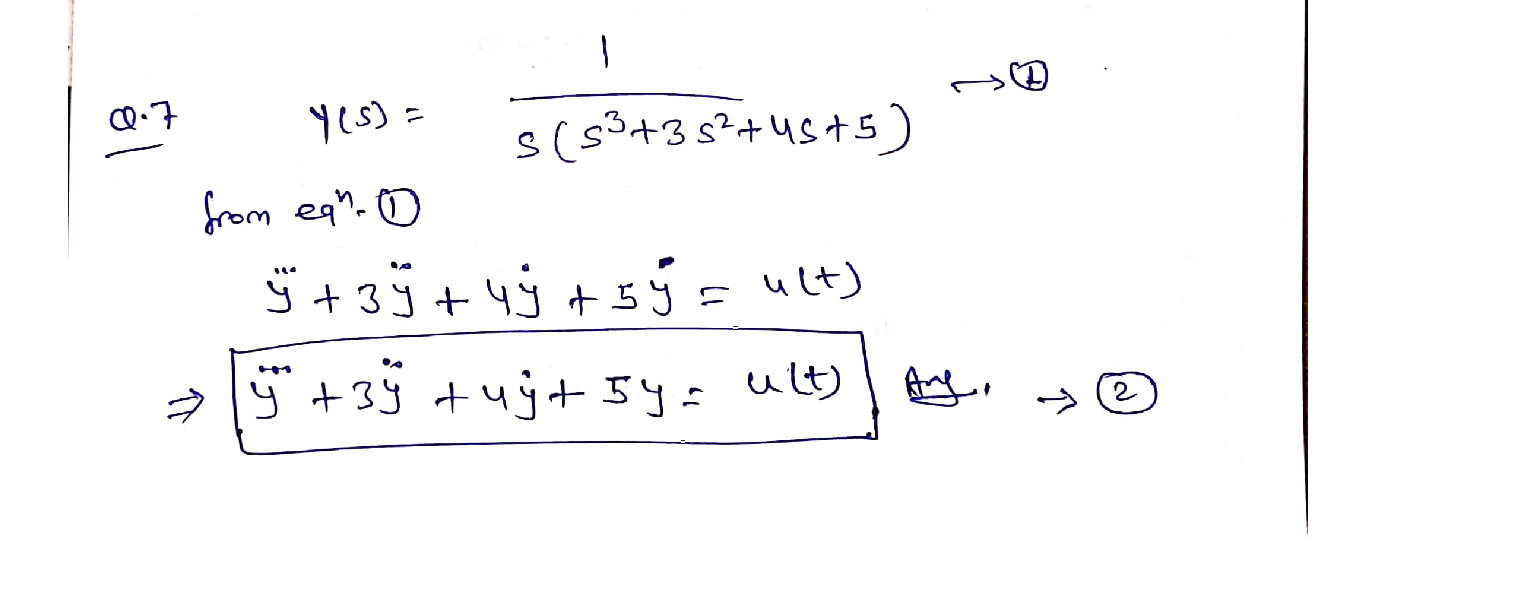 Q.7 Y(s) = 1 / s(s³+3s²+4s+5) → ①
from eqⁿ. ①
y⃛ + 3ÿ + 4ẏ + 5ẏ = u(t)
⇒ y⃛ + 3ÿ + 4ẏ + 5y = u(t) Ans. → ②